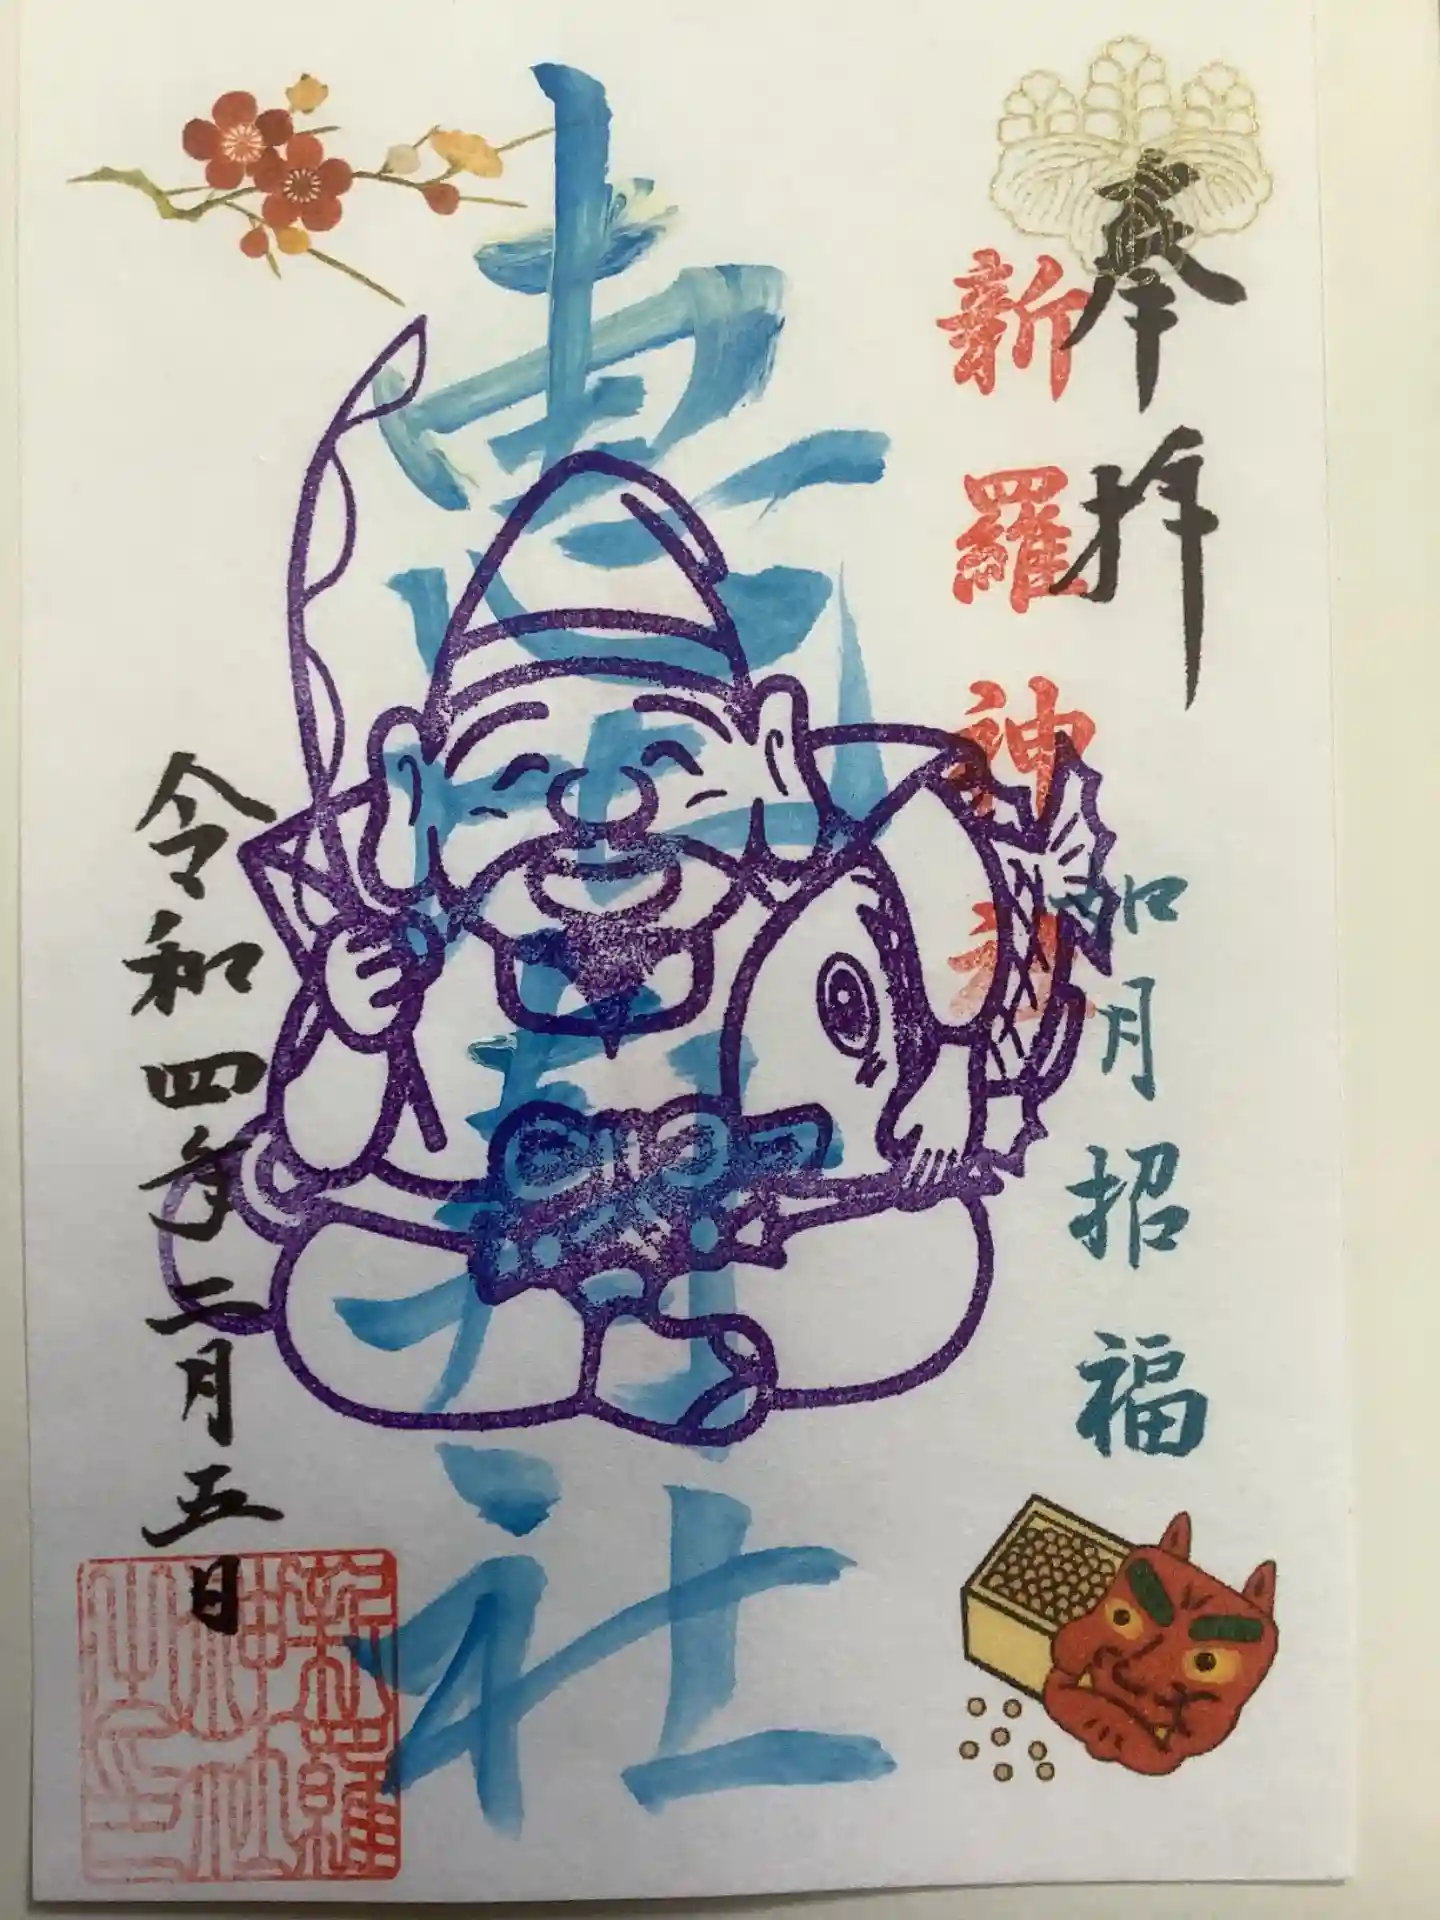 奉拝
新羅神社
如月招福
恵比寿社
令和四年二月五日
新羅
神社
之印